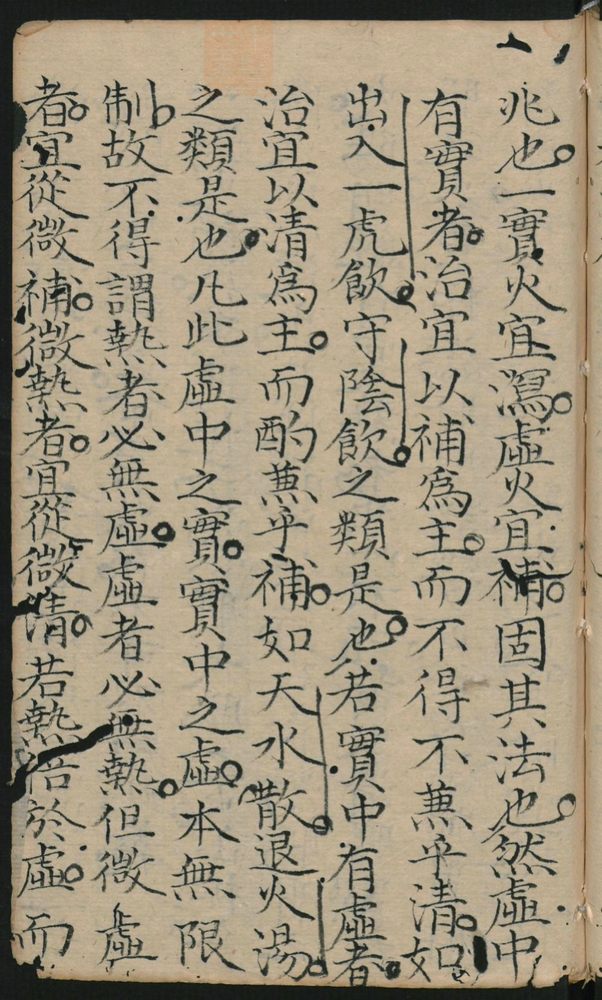 兆也一實火宜瀉虛火宜補固其法也然虛中
有實者治宜以補爲主而不得不蒹乎清如
出入一虎飲守陰飲之類是也若實中有虛者
治宜以清爲主而酌蒹乎補如天水散退火湯
之類是也凡此虛中之實實中之虛本無限
制故不得謂熱者必無虛虛者必無熱但微虛
者宜從微補微熱者宜從微清若熱倍於虛而